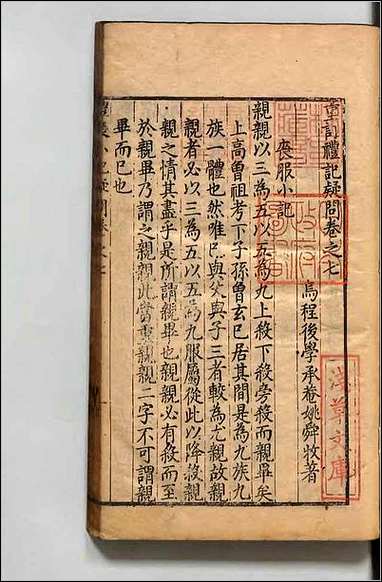 重訂禮記疑問卷之七
烏程後學承菴姚舜牧著
喪服小記
親親以三為五以五為九上殺下殺旁殺而親畢矣
上高曾祖考下子孫曾玄己居其間是為九族九
族一體也然唯己與父與子三者較為尤親故親
親者必以三為五以五為九服屬從此以降殺親
親之情其盡乎是所謂親畢也親親必有殺而至
於親畢乃謂之親親此當重親親二字不可謂親
畢而已也
淺草文庫